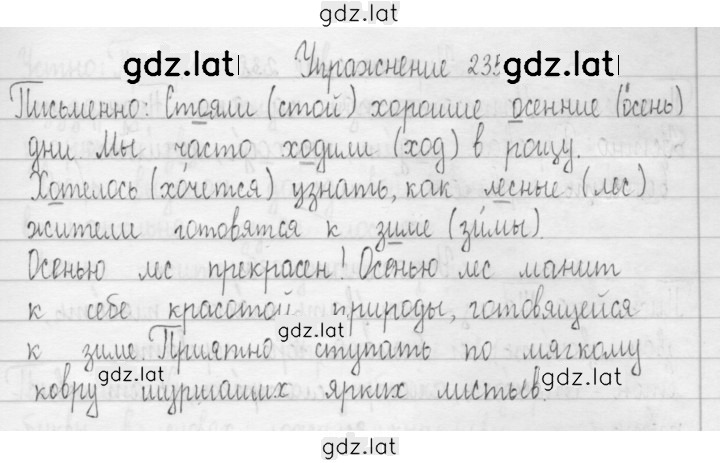 gdz.lat
gdz.lat
Упражнение 235
Письменно: Стояли (стой) хорошие осенние (о́сень)
дни. Мы часто ходили (ход) в рощу.
Хотелось (хо́чется) узнать, как лесные (лес)
жители готовятся к зиме (зи́мы).
Осенью лес прекрасен! Осенью лес манит
к себе красотой природы, готовящейся
gdz.lat
к зиме. Приятно ступать по мягкому
gdz.lat gdz.lat
ковру шуршащих ярких листьев.
gdz.lat